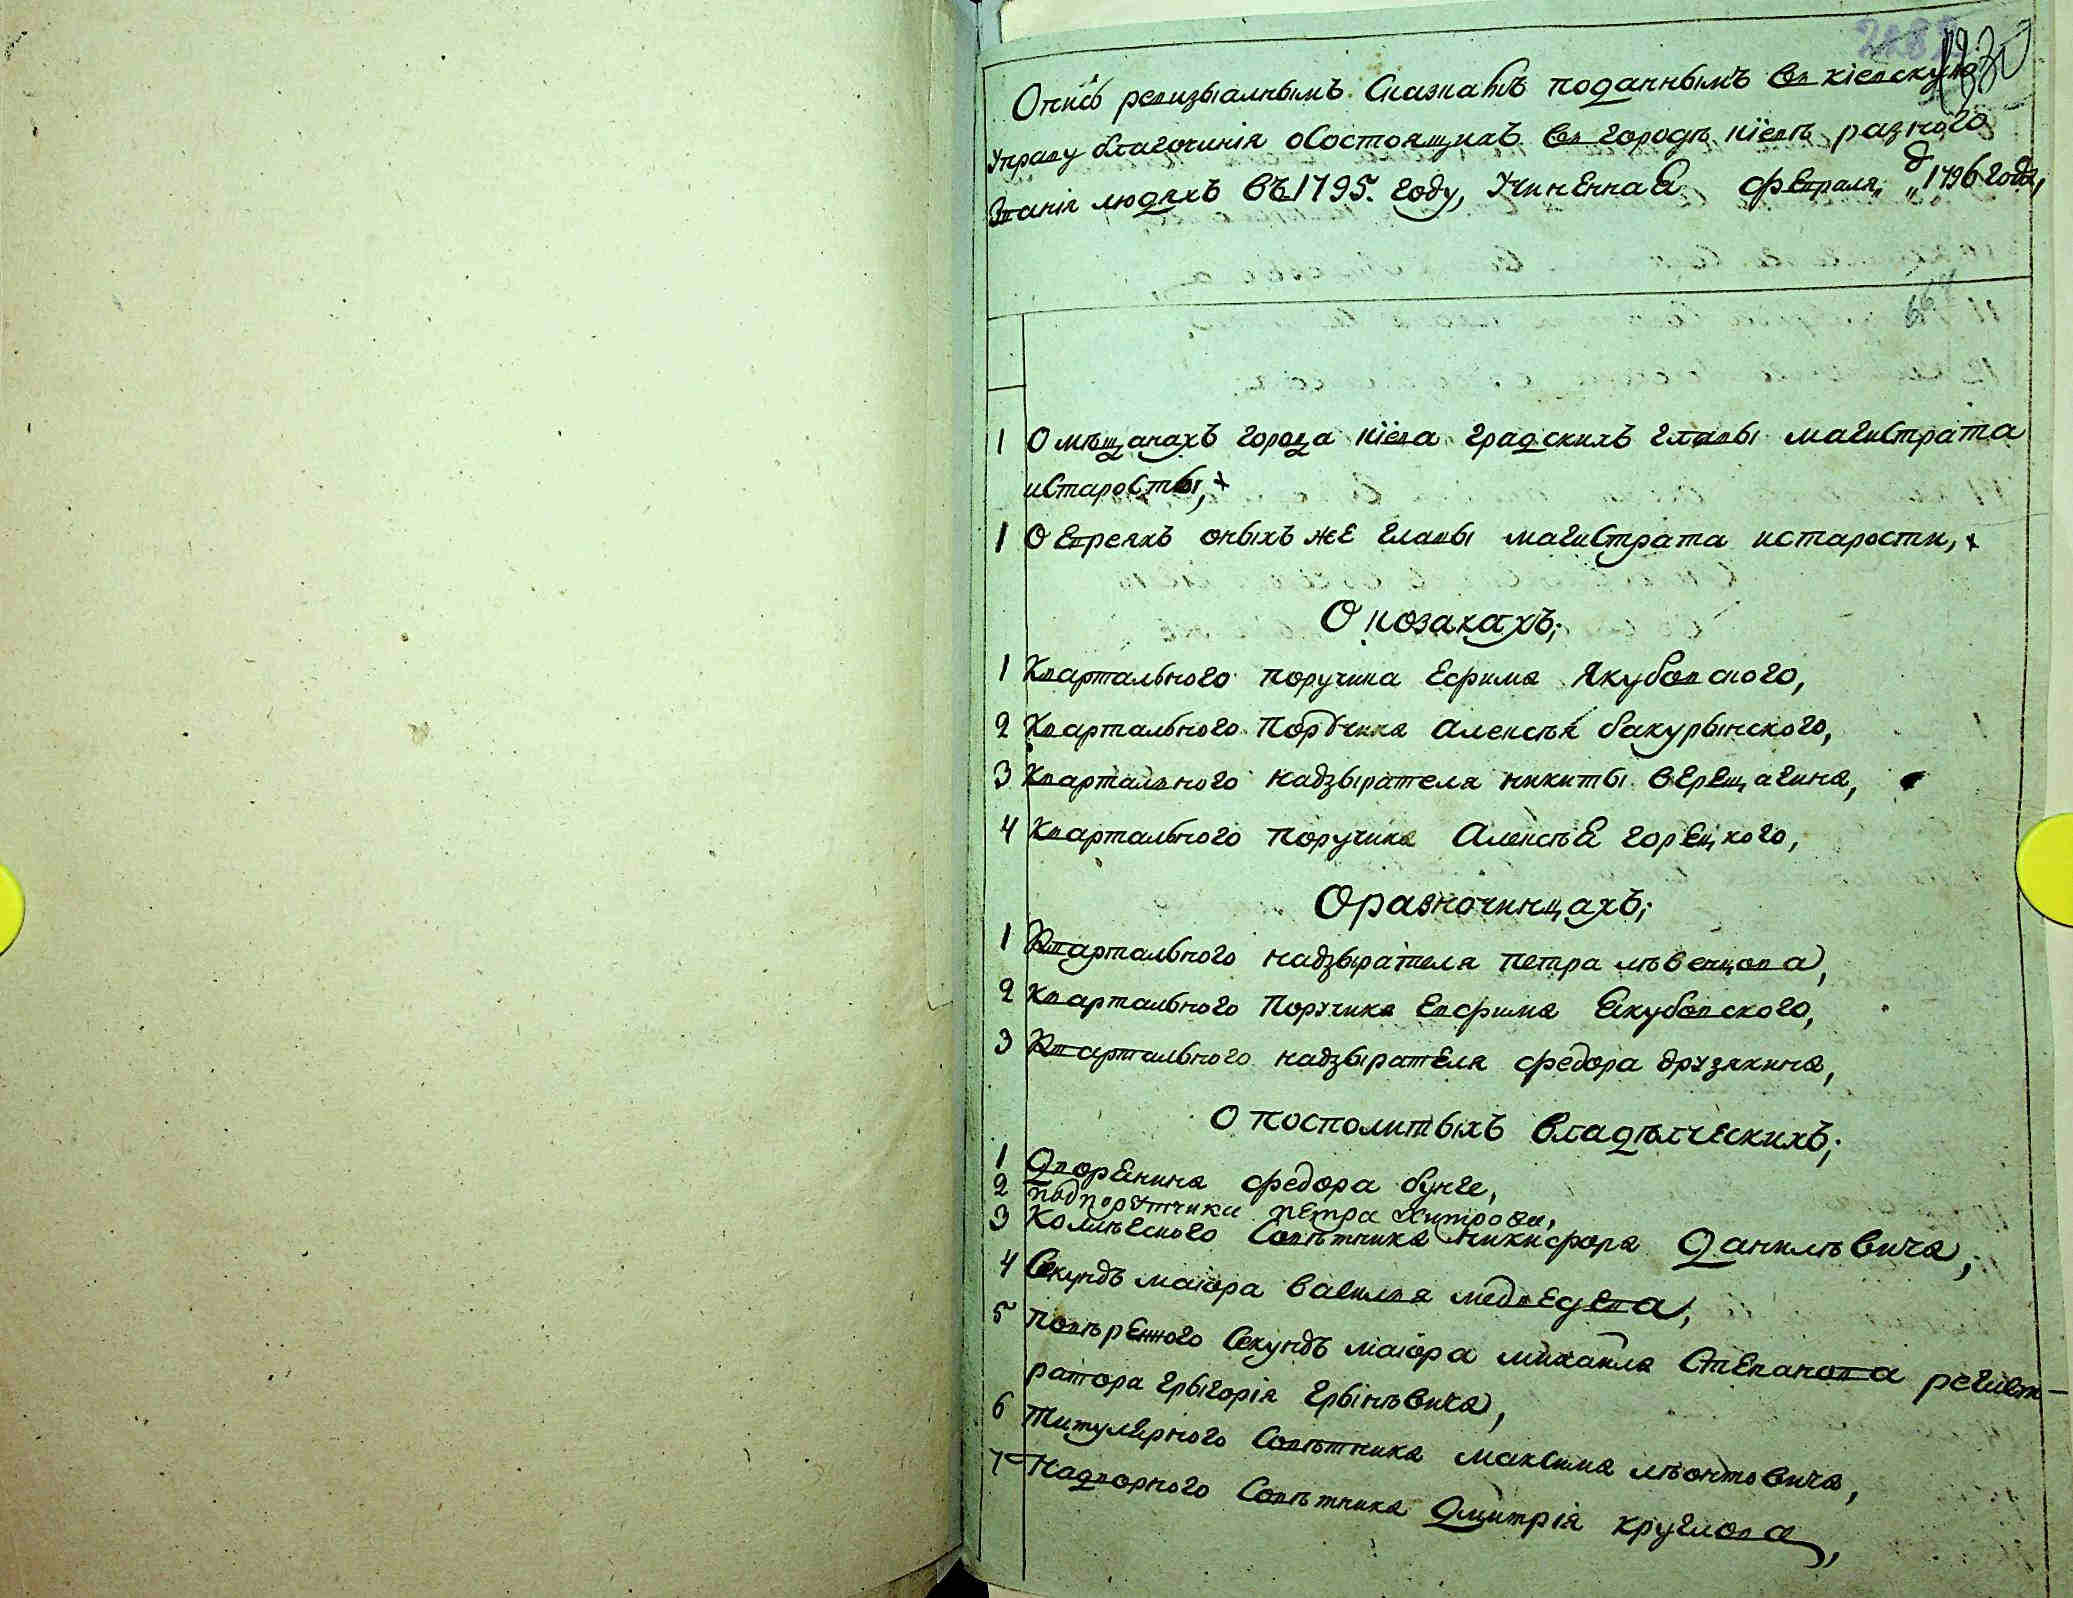 Опись ревизыалнымъ Сказкамъ поданнымъ въ кіевскую
Управу благочинія оСостоящихъ въ городѣ кіевѣ разного
Званія людяхъ въ 1795. году, УчинЕнная фЕвраля, д 1796 года,
667
1 О мѣщанахъ города кіева градскихъ главы магистрата
истаросты, х
1 О Евреяхъ оныхъ жЕ главы магистрата истарости, х
О козакахъ;
1 Квартального поручика Ефима Якубовского,
2 Квартального Поручика Алексѣя бакурынского,
3 Квартального надзырателя никиты вЕрЕщагина,
4 Квартального поручика АлексѣЯ горЕцкого,
О разночинцахъ;
1 Квартального надзырателя петра лѣвенцова,
2 Квартального Поручика Евфима Якубовского,
3 Квартального надзырателя федора друзякина,
О посполитыхъ владѣлческихъ;
1 Дворянина федора бунге,
2 подпорутчика пЕтра Хитрова,
3 Коллѣзского Совѣтника никифора Данилѣвича,
4 Секундъ маіора василія медвЕдЕва,
5 повѣрЕнного Секундъ маіора михаила СтЕпанова регист-
ратора грыгорія грынѣвича,
6 титулярного Совѣтника максима лѣонтовича,
7 Надворного Совѣтника Дмитрія круглова,